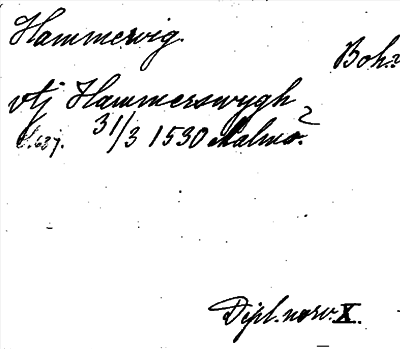 Hammervig.
Boh.
vtj Hammerswygh
s. 687. 31/3 1530 Malmö?
Dipl. norv. X.